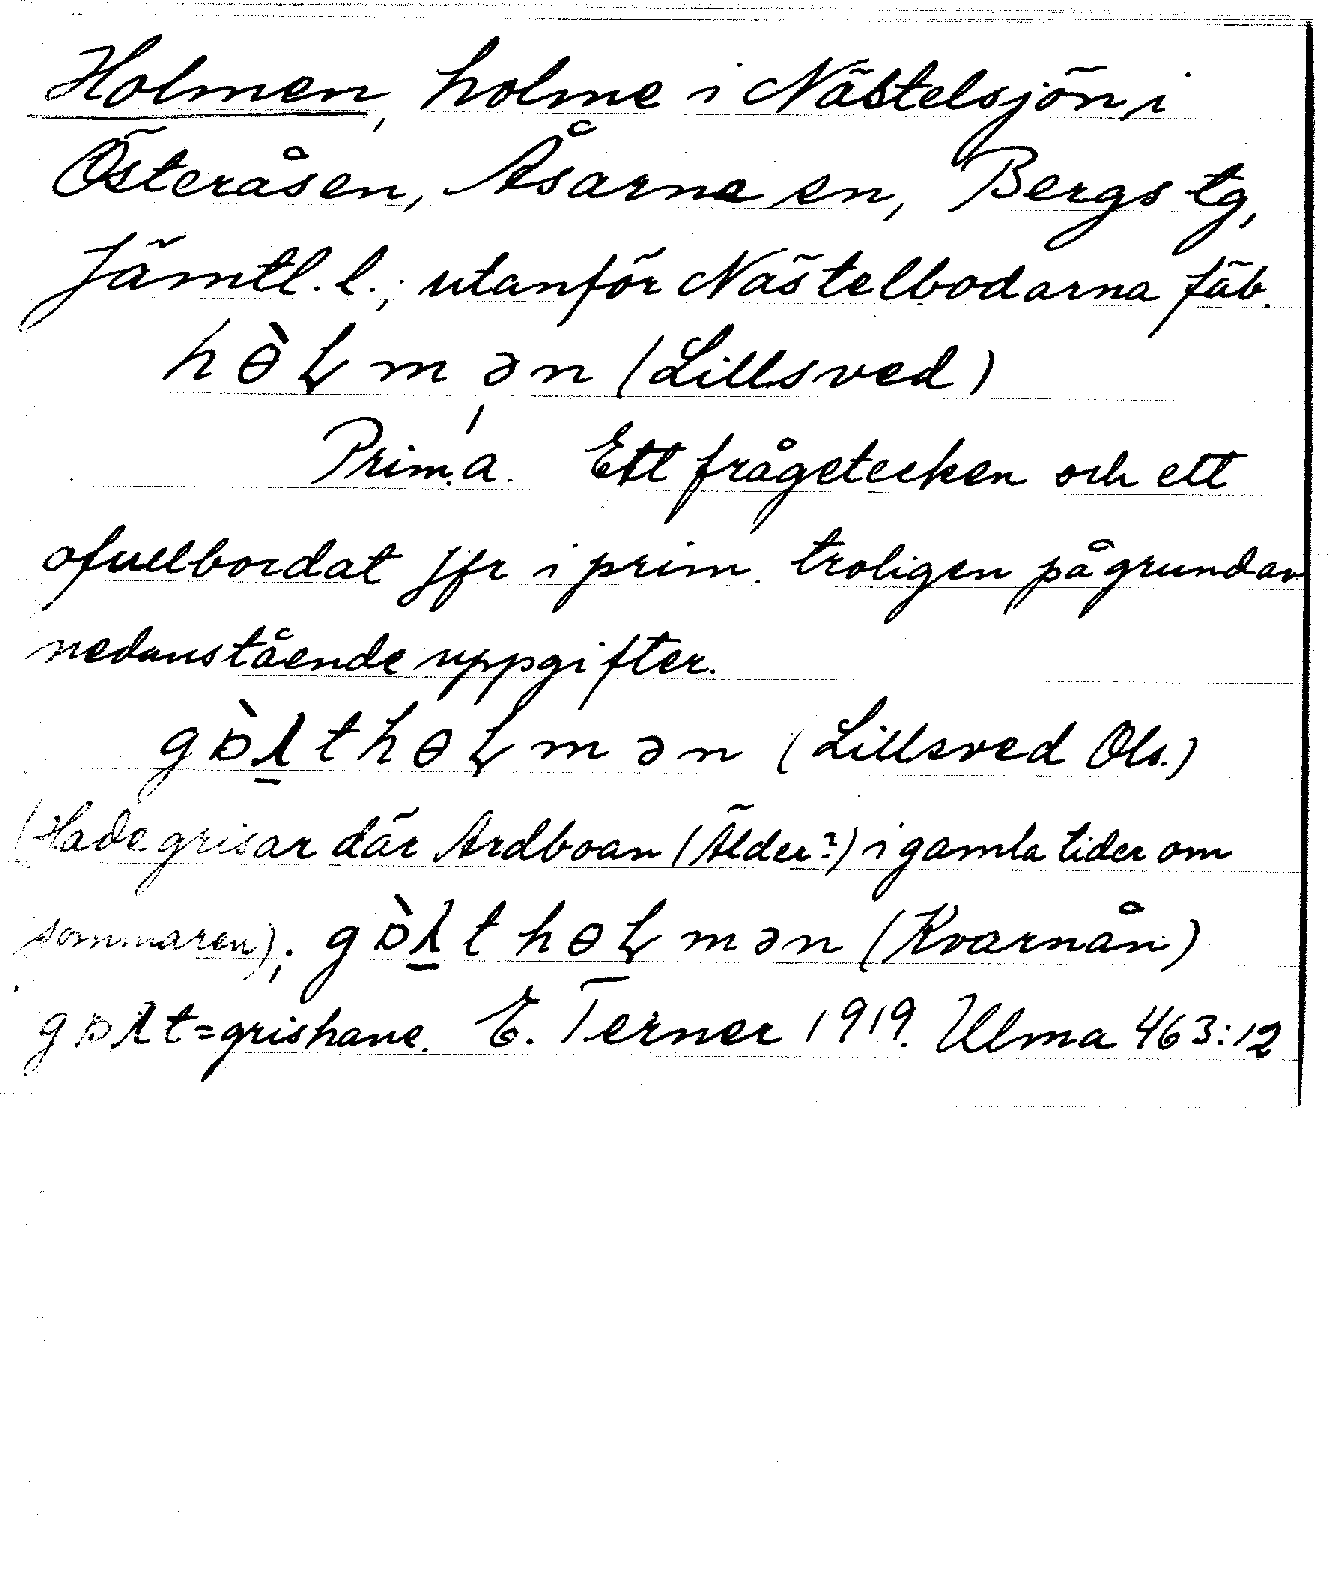 Holmen, holme i Nästelsjön i
Österåsen, Åsarne sn, Bergs tg,
Jämtl. l.; utanför Nästelbodarna fäb.
hɵ̀ɭmən (Lillsved)
Prim. a. Ett frågetecken och ett
ofullbordat jfr i prim. troligen på grund av
nedanstående uppgifter.
gɒ̀λthɵɭmən (Lillsved Ols.)
(Hade grisar där Ardboan (Ålder?) i gamla tider om
sommaren); gɒ̀λthɵɭmən (Kvarnån)
gɒλt=grishane. E. Terner 1919. Ulma 463:12